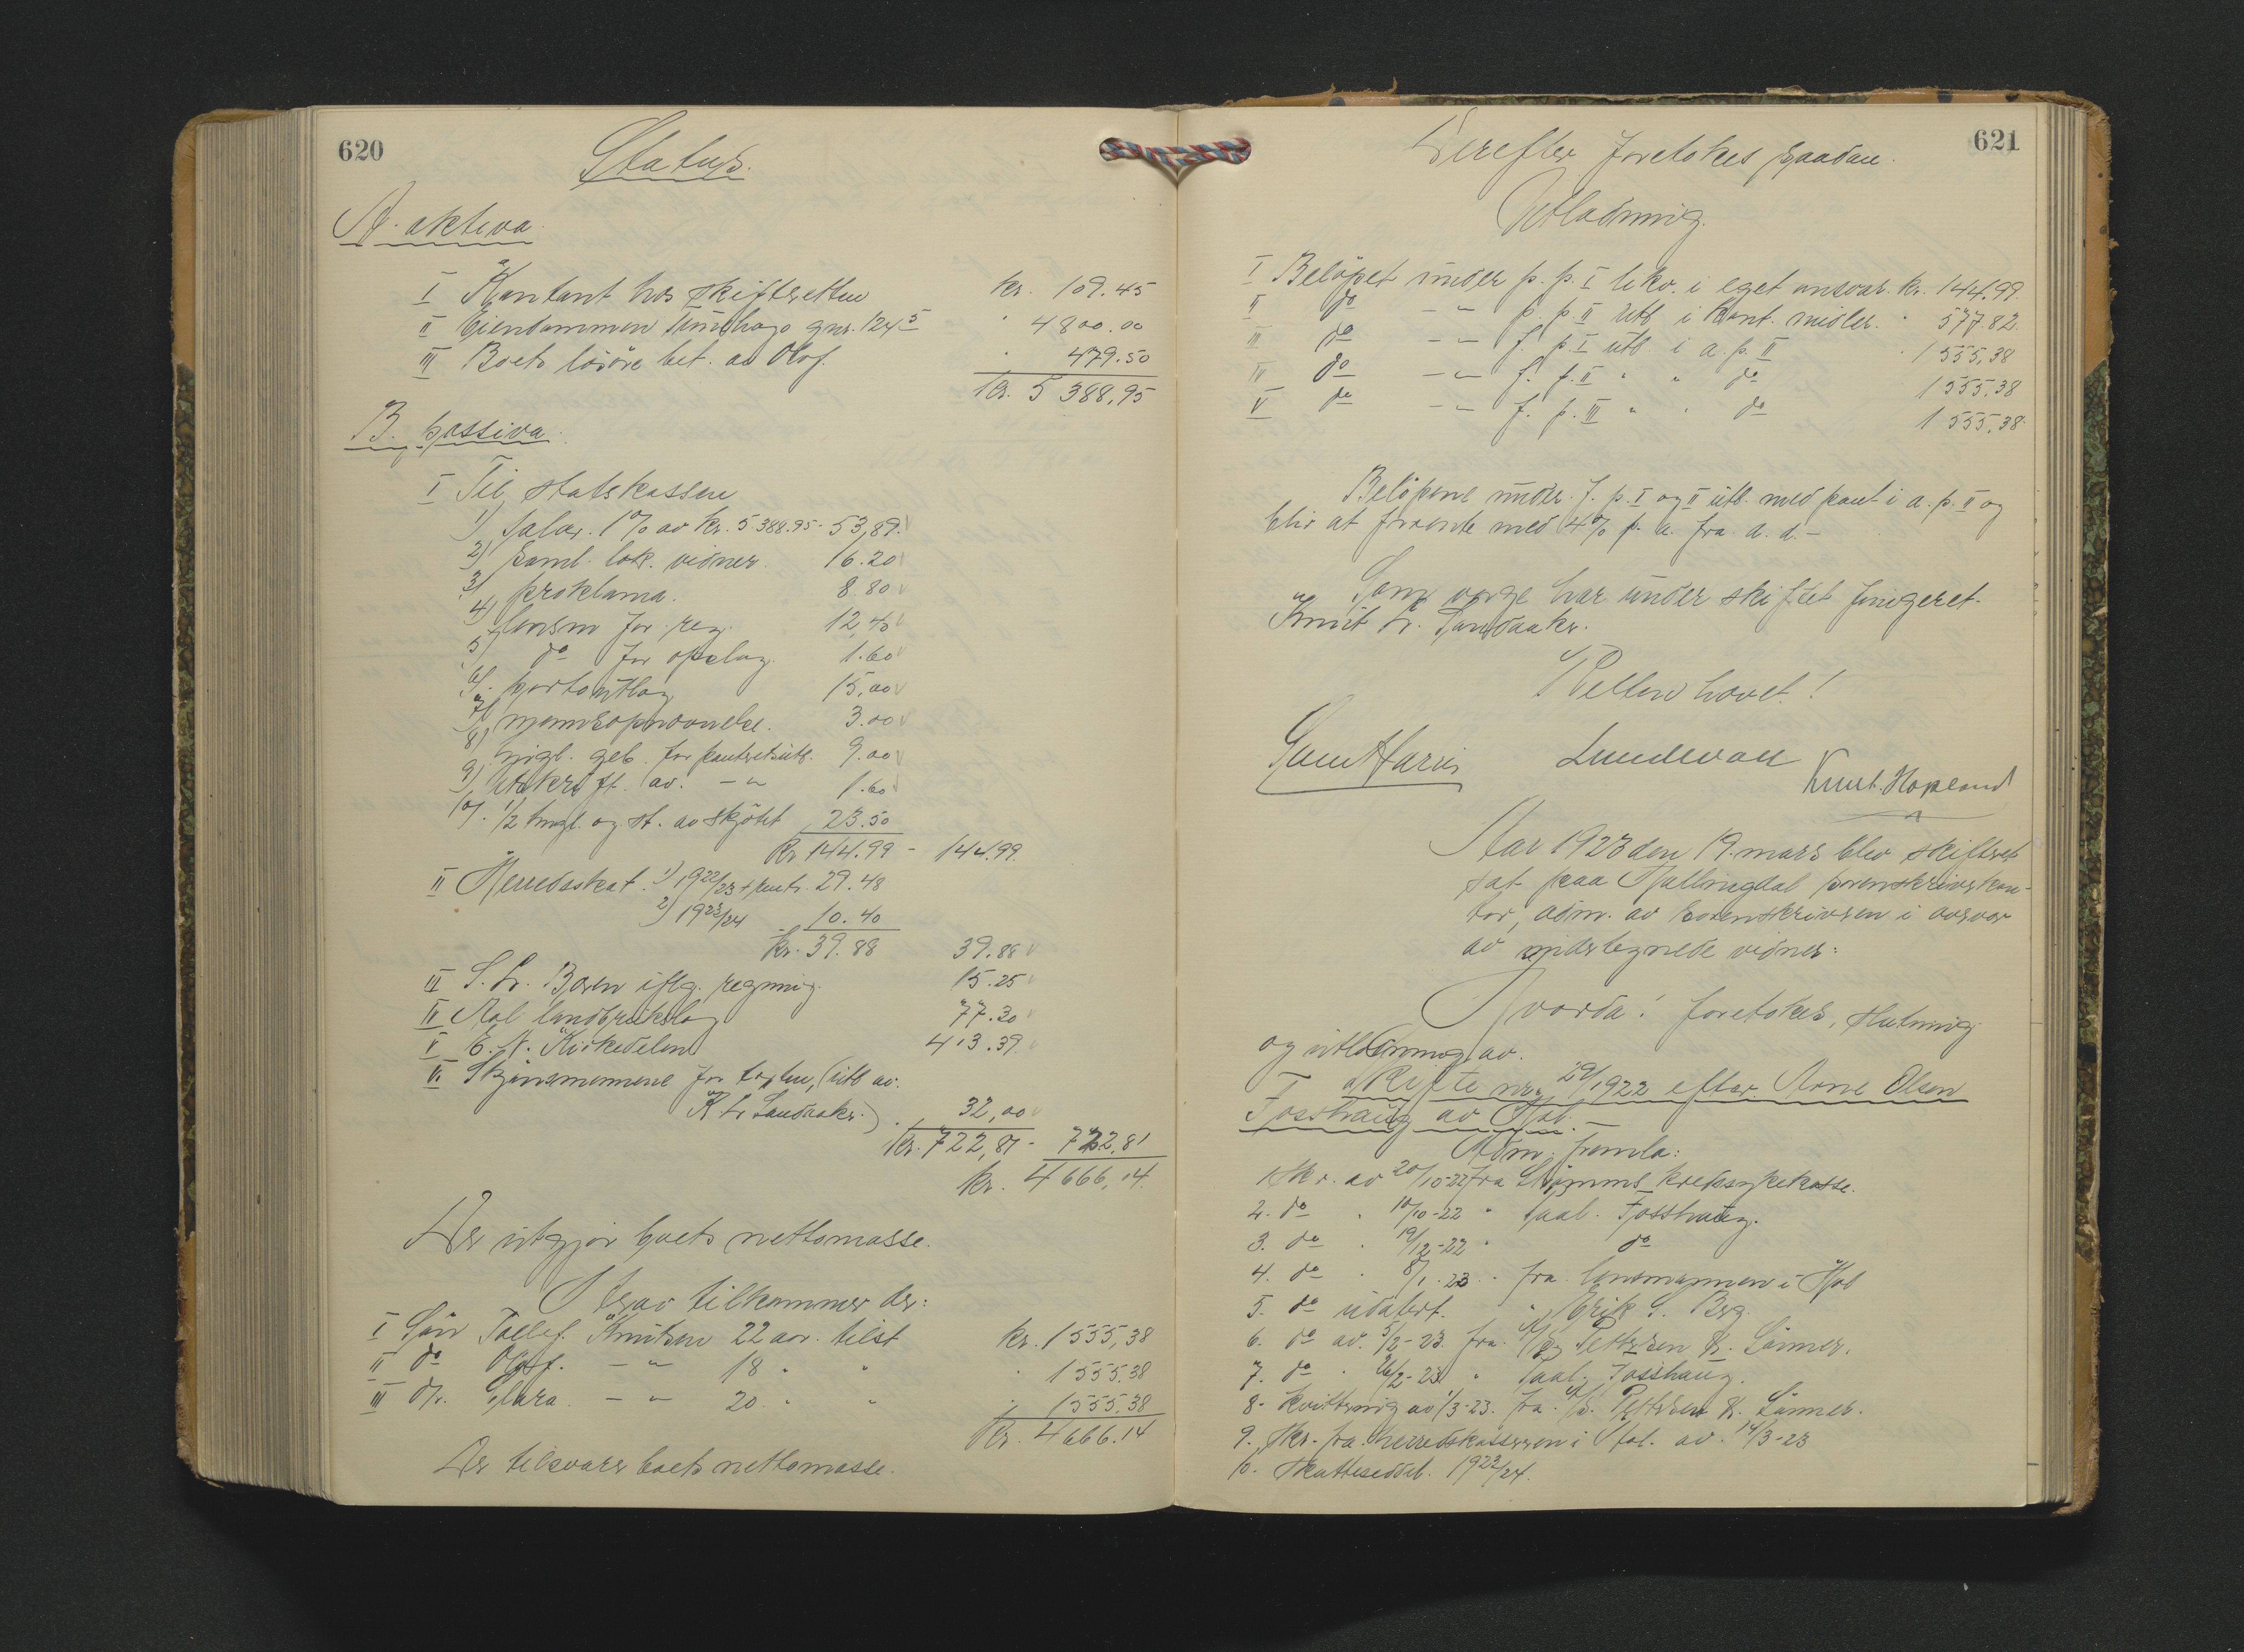 620
Status.
A. aktiva
I Kontant hos skifteretten kr. 109.45
II Eiendommen gnr. 124/5 " 4800.00
III Boets lösöre bet. av Olof. " 479.50
kr. 5388,95
B. passiva.
I Til statskassen
1) Salær. 1% av kr. 5388.95 - 53,89.
2) saml. lok. vidner 16.20
3) proklama. 8.80
4) lensm for reg. 12,40
5) do for opslag. 1.60
6) portoutlæg 15,00
7) mannsopnævnelse. 3.00
8) tingl. geb. for pantretsutl. 9.00
9) Utskrift. av. -"- 1.60
10). 1/2 tingl. og st. av skjötet 23.50
kr 144.99 - 144.99.
II Herredsskat. 1) 1922/23 + rent. 29.48
2) 1923/24 10.40
kr. 39.88 39.88
III S. Lr. iflg. regning. 15.25
IV Aal landbrukslag 77.30
V E. N. Kirkedelen 413.39.
VI Skjönsmennene for taxten, (utl av.
K Lr Sandaaker.) . 32,00
kr. 722,81 - 722,81
kr. 4666,14.
Der utgjör boets nettomasse.
Herav tilkommer der:
I Sön Tollef Knutsen 22 aar. tilst kr. 1555,38
II do Olof. -"- 18 " " " 1555.38
III dtr. Clara. -"- 20. " " " 1555.38
kr. 4666.14
Der tilsvarer boets nettomasse.
621
Derefter foretokes saadan
Utlodning.
I Belöpet under p. p. I likv. i eget ansvar. kr. 144.99.
II do -"- p. p. II utl i kont. midler. " 577.82.
III do -"- f. p. I utl i a. p. II " 1555,38
IV do -"- f. p. II " " do 1555.38
V do -"- f. p. III " " do 1555.38
Belöpene under. f. p. I og II utl. med pant i a. p. II og
blir at forrente med 4% p. a. fra d. d. -
Som verge har under skiftet fungeret
Knut Lr. Sandaaker.
Retten hævet!
Lundevall
Knut. Hopland
Aar 1923 den 19. mars blev skifteret
sat paa Hallingdal sorenskriverkon-
tor, adm. av sorenskriveren i overvær
av undertegnede vidner:
Hvorda! foretokes, slutning
og utlodning av.
I Skifte nr. 29/1922 efter Arne Olsen
Fosshaug av Hol.
Adm. fremla:
1 Skr. av 20/10-22 fra kredssykekasse.
2. do " 10/10-22 " Fosshaug.
3. do " 19/12-22 " do
4. do " 8/1.23 " fra lensmannen i Hol
5. do udatert. " Erik S. Berg.
6. do av. 5/2-23. fra. A/S Pettersen &
7. do " 26/2-23 " Fosshaug.
8. Kvittering av 1/3-23. fra. A/S. Pettersen &
9. Skr. fra herredskassereren i Hol. av. 14/3-23
10. Skatteseddel. 1923/24.